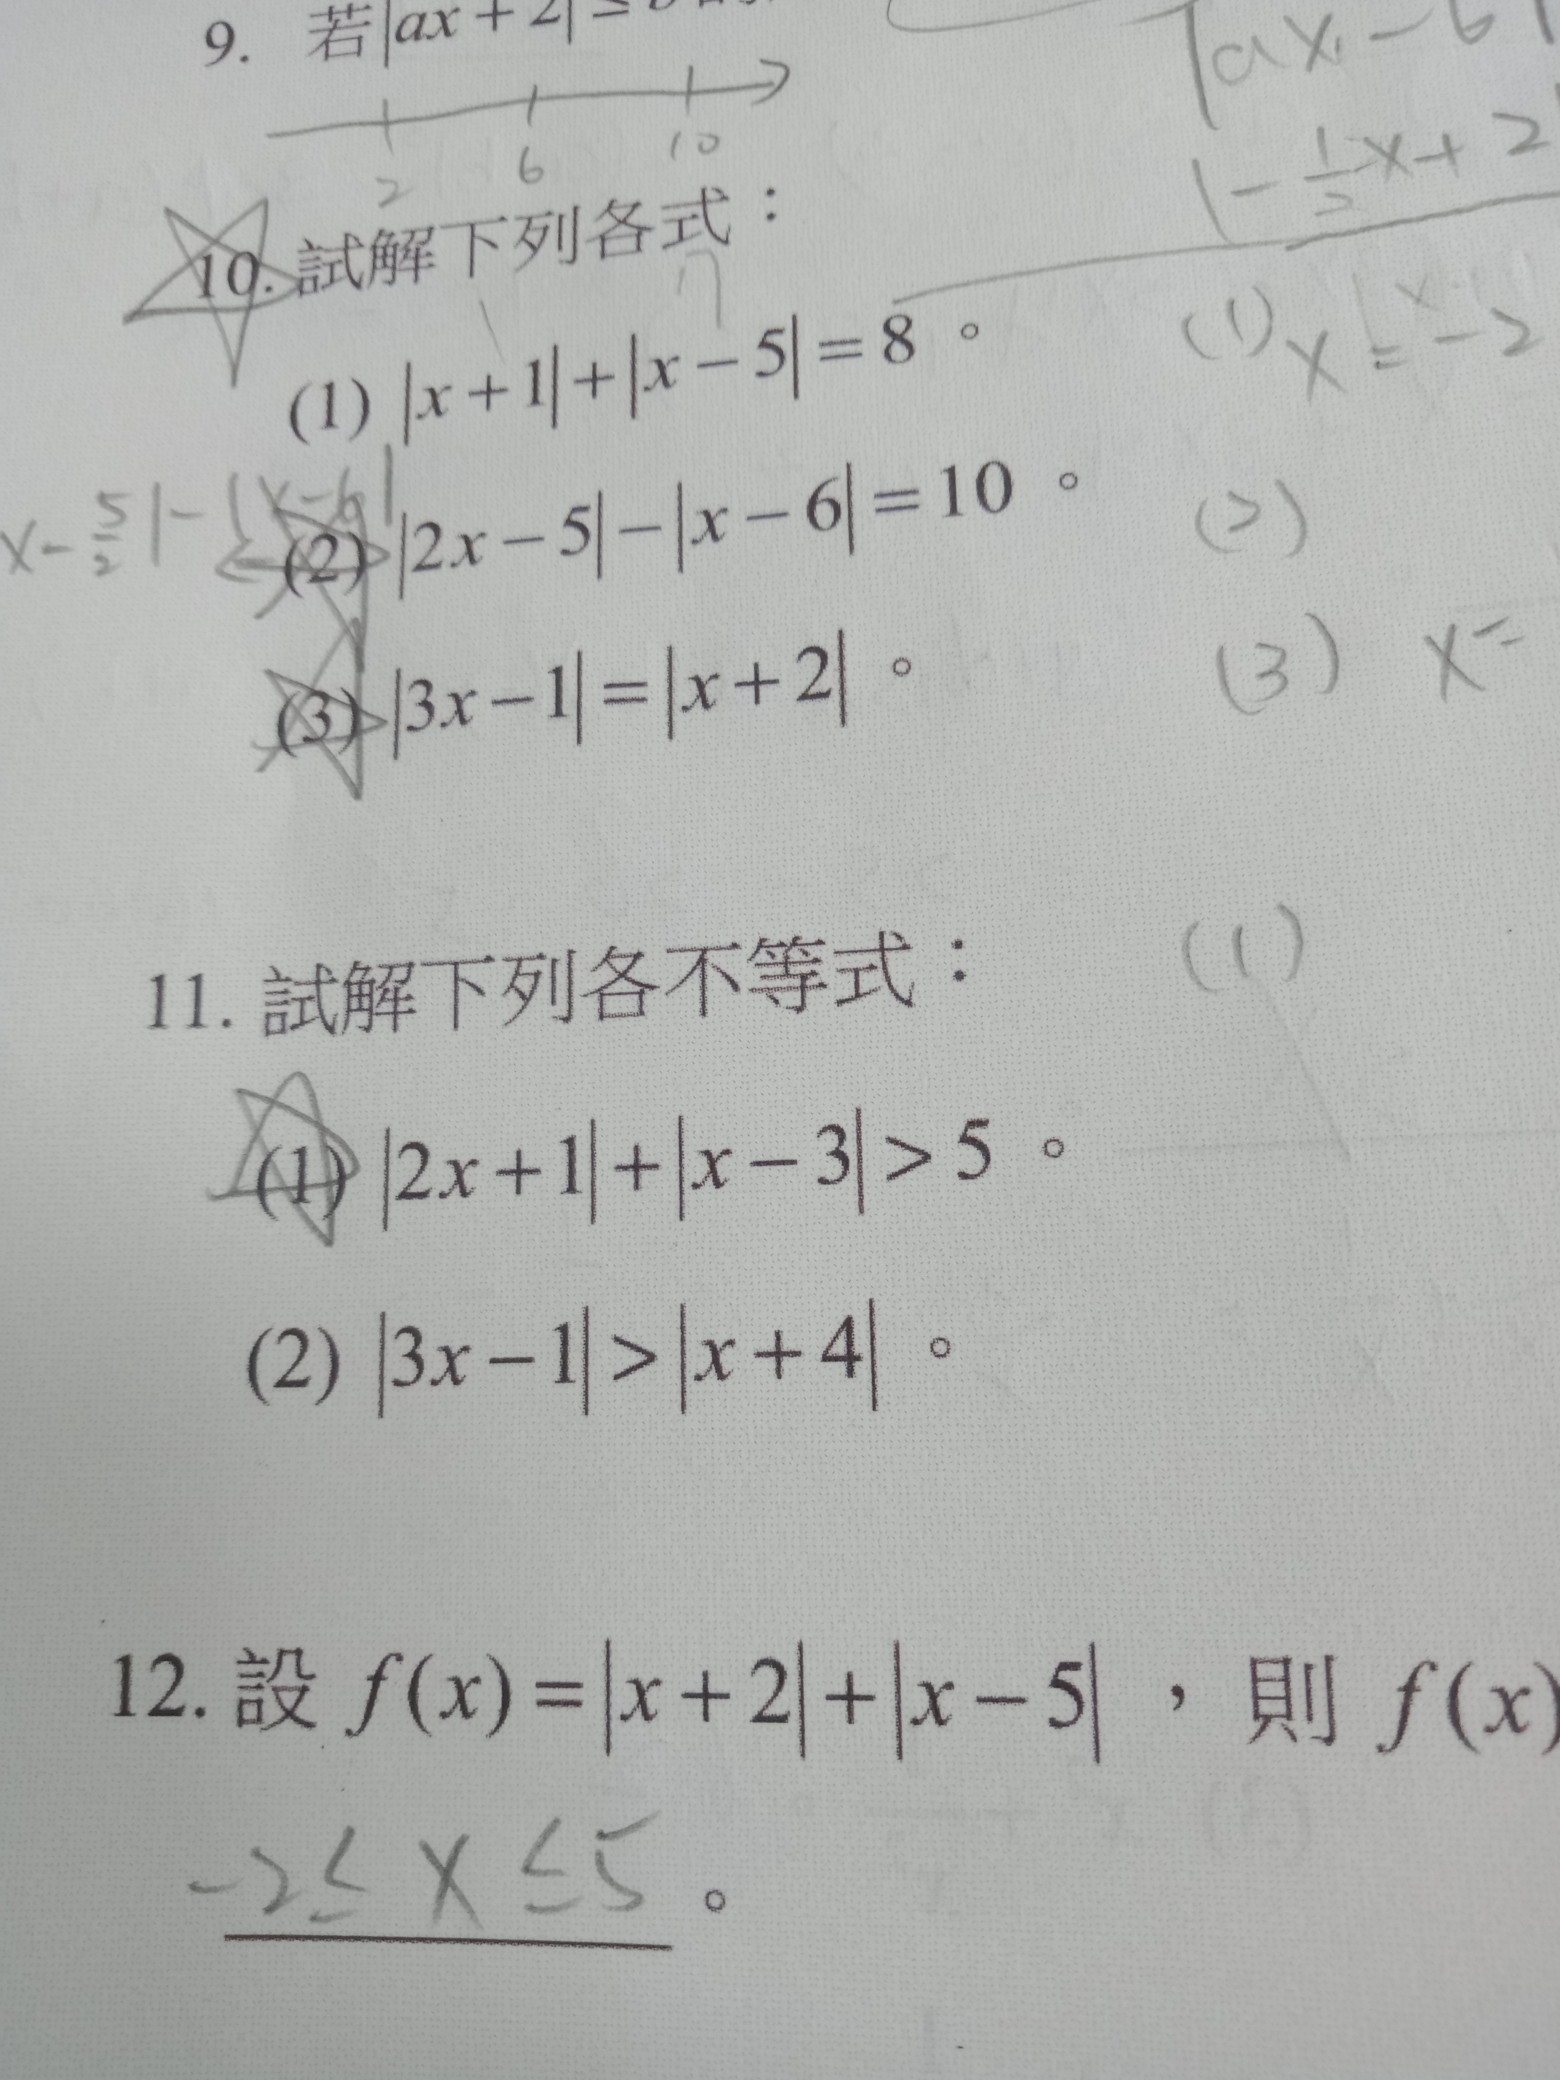 9. 若|ax+2|≤
|ax-6|
2 6 10
|-1/2x+2
10. 試解下列各式：
(1) |x+1|+|x-5|=8。
(1) x = -2
x-5/2|-|x-6|
(2) |2x-5|-|x-6|=10。
(2)
(3) |3x-1|=|x+2|。
(3) x=
11. 試解下列各不等式：
(1)
(1) |2x+1|+|x-3|>5。
(2) |3x-1|>|x+4|。
12. 設 f(x)=|x+2|+|x-5|，則 f(x)
-2≤x≤5。